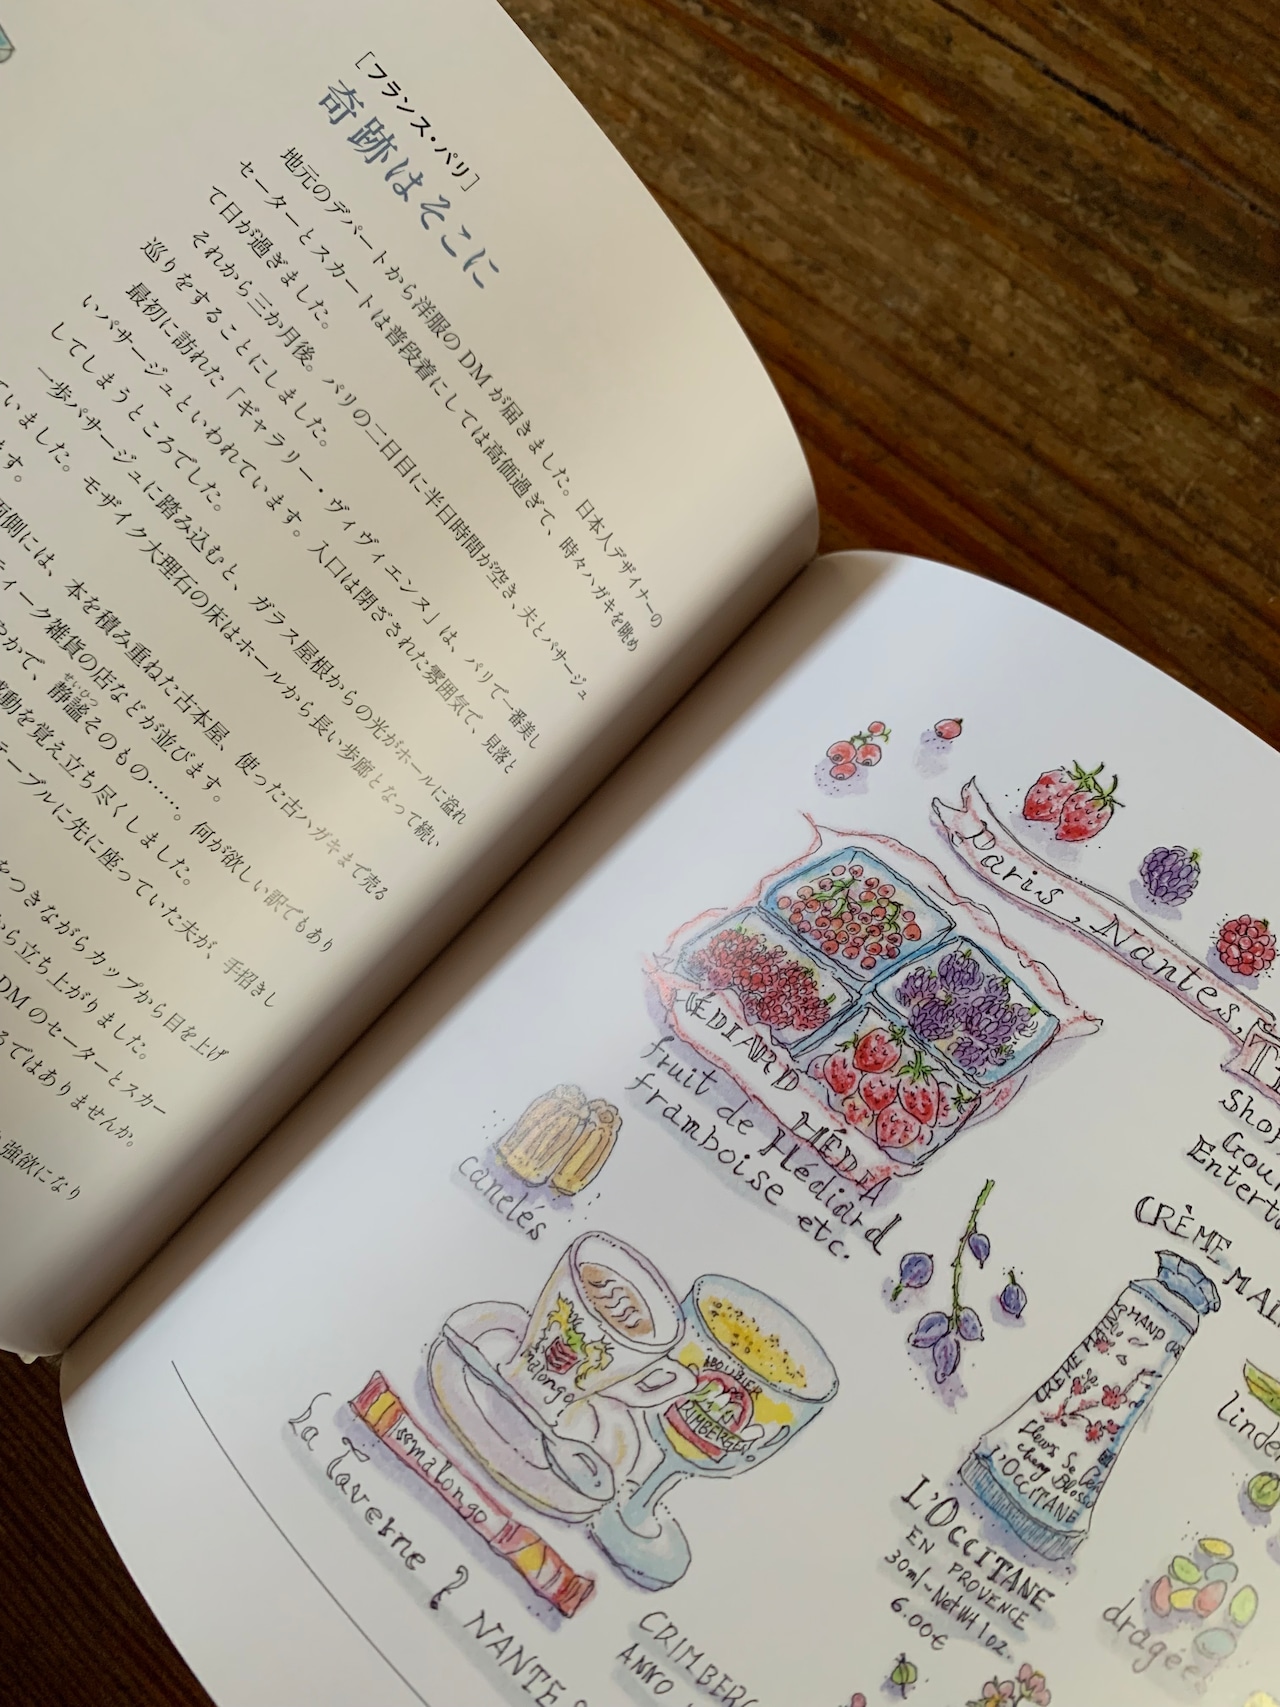 [フランス・パリ]
奇跡はそこに
地元のデパートから洋服のDMが届きました。日本人デザイナーの
セーターとスカートは普段着にしては高価過ぎて、時々ハガキを眺め
て日が過ぎました。
それから三か月後。パリの二日目に半日時間が空き、夫とパサージュ
巡りをすることにしました。
最初に訪れた「ギャラリー・ヴィヴィエンヌ」は、パリで一番美し
いパサージュといわれています。入口は閉ざされた雰囲気で、見落と
してしまうところでした。
一歩パサージュに踏み込むと、ガラス屋根からの光がホールに溢れ
ていました。モザイク大理石の床はホールから長い歩廊となって続い
ます。
両側には、本を積み重ねた古本屋、使った古ハガキまで売る
ティーク雑貨の店などが並びます。
やかで、静謐そのもの……。何が欲しい訳でもあり
せいひつ
感動を覚え立ち尽くしました。
テーブルに先に座っていた夫が、手招きし
をつきながらカップから目を上げ
から立ち上がりました。
DMのセーターとスカー
るではありませんか。
強欲になり
Paris, Nantes,
HÉDIARD HÉDIA
fruit de Hédiard
framboise etc.
canelés
malongo
malongo
La Taverne ? NANTES
GRIMBERGEN
CRIMBERG
ANNO
Shop
Gour
Entert
CRÈME MAI
CRÈME MAINS HAND
Cherry Bloss
L'OCCITANE
L'OCCITANE
EN PROVENCE
30ml~Net Wt 1oz.
6.00€
linde
dragée